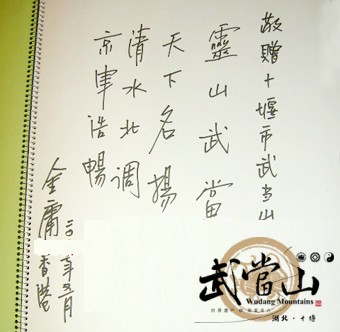 敬贈十堰市武当山
靈山武當
天下名揚
清水北調
京津浩暢
金庸
香港
武當山
Wudang Mountains
湖北·十堰